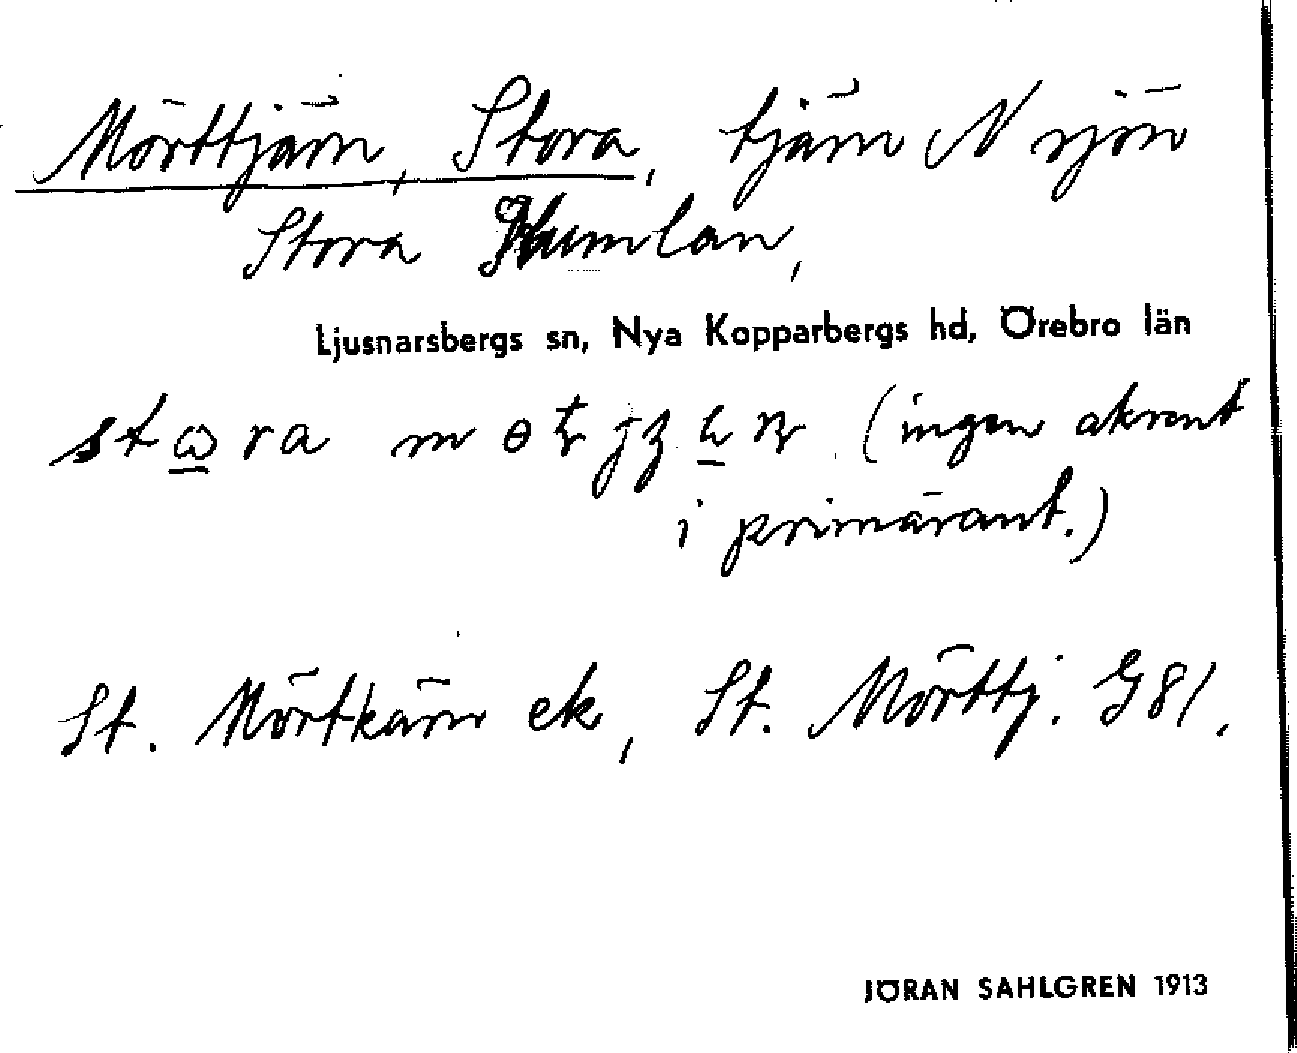 Mörttjärn, Stora, tjärn N sjön
Stora Humlan,
Ljusnarsbergs sn, Nya Kopparbergs hd, Örebro län
(ingen akcent
i primärant.)
St. Mörtkärn ek, St. Mörttj. G81.
JÖRAN SAHLGREN 1913